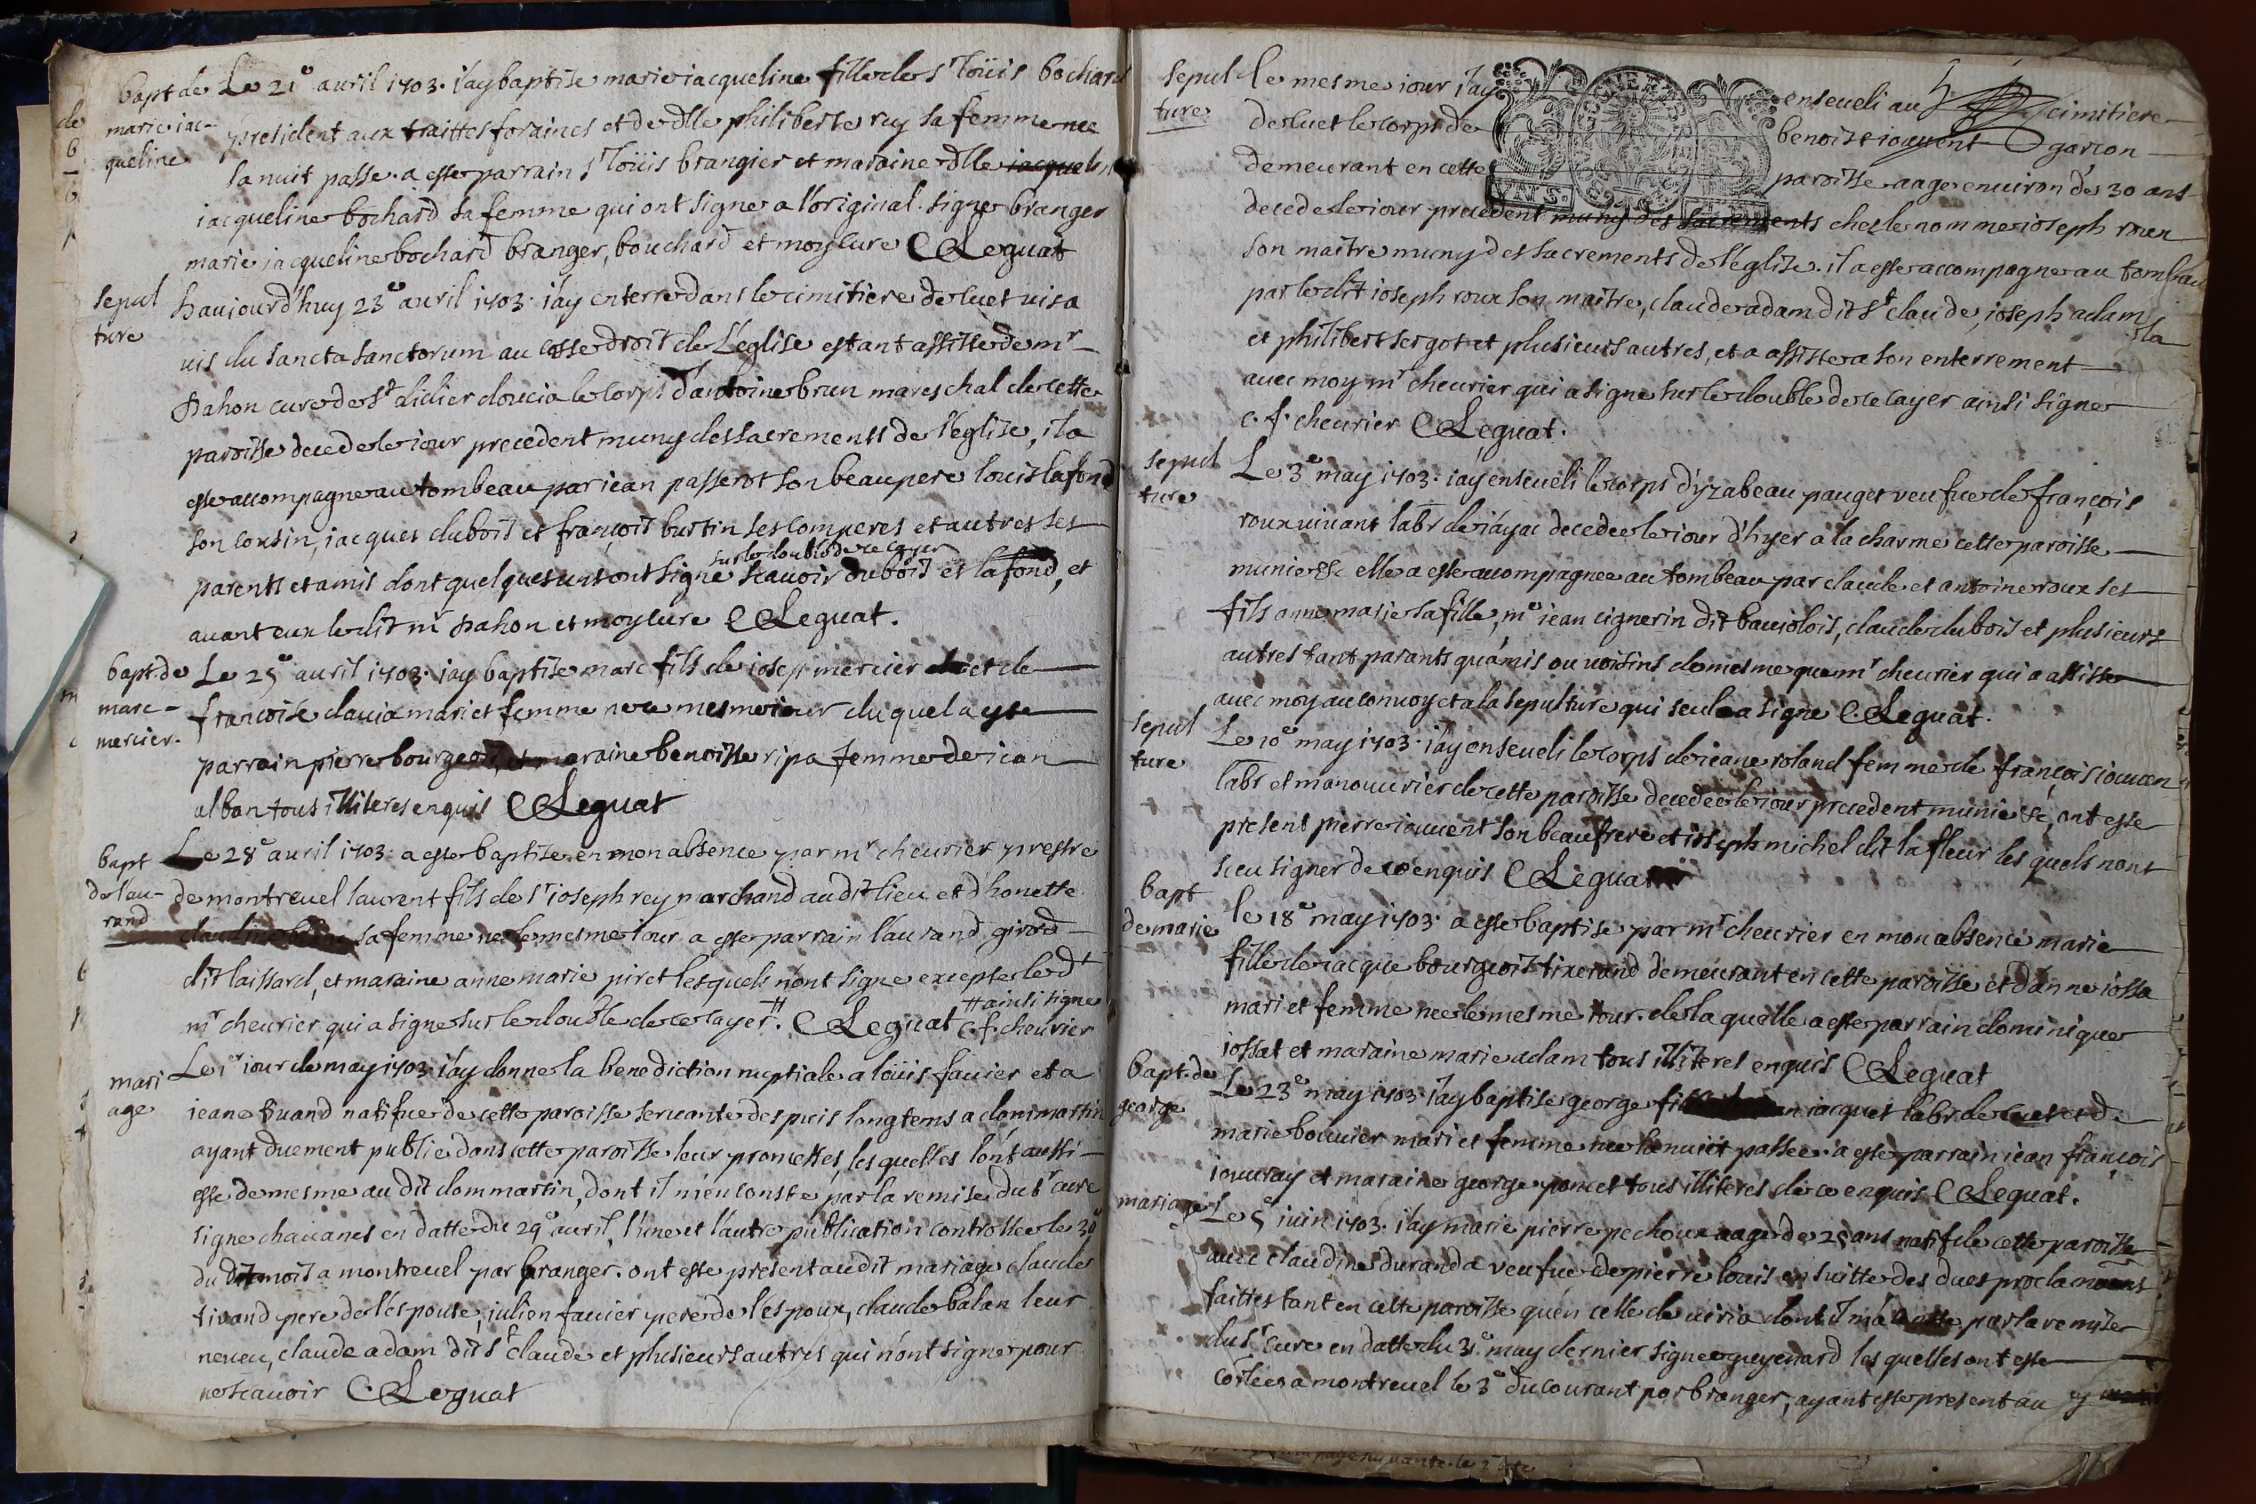 bapt de Le 21e auril 1703. i'ay baptise marie iacqueline fille de sr loüis bochard
marie iac- president aux traittes foraines et de dlle philiberte rey sa femme nee
queline la nuit passe. a esté parrain sr loüis brangier et maraine dlle iacqueline
iacqueline bochard sa femme qui ont signe a l'original. signe branger
marie iacqueline bochard branger, bouchard et moy cure C Leguat
sepul haujourd'huy 23e auril 1703. i'ay enterre dans le cimitiere de cuet uis a
ture uis du sancta sanctorum au costé droit de l'eglise estant assisté de mr
Dahon cure de st didier doucia le corps d'antoine brun mareschal de cette
paroisse decede le iour precedent muny des sacrements de l'eglise, il a
esté accompagne au tombeau par iean passerot son beau pere louis lafond
son cousin, iacques dubois et françois burtin ses comperes et autres ses
sur le double de ce cayer
parents et amis dont quelques uns ont signe scauoir dubois et lafond, et
auant eux le dit mr Dahon et moy cure C Leguat.
bapt. de Le 25e auril 1703. i'ay baptise marc fils de iosep mercier et de
marc - françoise dauia mari et femme ne ce mesme iour du quel a esté
mercier. parrain pierre bourgeois, et maraine benoiste ripa femme de iean
alban tous illiteres enquis C Leguat
bapt Le 28e auril 1703. a esté baptise en mon absence par mr cheurier prestre
de lau- de montreuel laurent fils de sr ioseph rey marchand au dit lieu et d'honette
rand sa femme ne le mesme iour a esté parrain laurand girord
dit laissard, et maraine anne marie piret lesquels n'ont signe excepte led
mr cheurier qui a signe sur le double de ce cayer #. C Leguat # ainsi signe
c. f. cheurier
mari Le 1r iour de may 1703 i'ay donne la benediction nuptiale a loüis fauier et a
age ieane tiuand natifue de cette paroisse seruante despuis longtems a dommartin
ayant duement publie dans cette paroisse leur promesses, les quelles l'ont aussi
esté de mesme au dit dommartin, dont il m'en conste par la remise du sr cure
signe chauanes en datte du 29e auril, l'une et l'autre publication controllee le 30e
du dit mois a montreuel par branger. ont esté present au dit mariage claude
tiuand pere de l'espouse, iulien fauier pere de l'espoux, claude balan leur
neueu, claude adam dit st claude et plusieurs autres qui n'ont signe pour
ne scauoir C. Leguat
sepul le mesme iour i'ay enseueli au cimitiere
ture de cuet le corps de benoist iouuent garcon
demeurant en cette paroisse aage enuiron de 30 ans
decede le iour precedent muny des sacrements ches le nomme ioseph roux
son maitre muny des sacrements de l'eglise. il a esté accompagne au tombeau
par le dit ioseph roux son maitre, claude adam dit st claude, ioseph adam
et philibert sergot et plusieurs autres, et a assisté a son enterrement
auec moy mr cheurier qui a signe sur le double de ce cayer ainsi signe
c. f. cheurier C Leguat.
sepul Le 3e may 1703. i'ay enseueli le corps d'yzabeau pauget veufue de françois
ture roux uiuant labr de iayac decedee le iour d'hyer a la charme cette paroisse
munie &c elle a esté accompagnee au tombeau par claude et antoine roux ses
fils anne marie sa fille, me iean uignerin dit baujolois, claude dubois et plusieurs
autres tant parants qu'amis ou uoisins de mesme que mr cheurier qui a assisté
auec moy au conuoy et a la sepulture qui seul a signe C. Leguat.
sepul Le 10e may 1703. i'ay enseueli le corps de ieane roland femme de françois iouuen
ture labr et manouurier de cette paroisse decedee le iour precedent munie &c, ont esté
present pierre iouuent son beau frere et ioseph michel dit la fleur les quels n'ont
sceu signer de ce enquis C Leguat
bapt le 18e may 1703. a esté baptise par mr cheurier en mon absence marie
de marie fille de iacque bourgeois tixerand demeurant en cette paroisse et d'anne iossa
mari et femme nee le mesme iour. de la quelle a esté parrain dominique
iossat et maraine marie adam tous illiteres enquis C Leguat
bapt. de Le 23e may 1703. i'ay baptise george iacquet labr de cuet et de
george marie bouuier mari et femme nee la nuict passee. a esté parrain iean françois
iouuray et maraine george poncet tous illiteres de ce enquis C Leguat.
mariage Le 5e iuin 1703. i'ay marie pierre pechoux aage de 25 ans natif de cette paroisse
auec claudine duranda veufue de pierre louis en suitte des dues proclamaons
faittes tant en cette paroisse qu'en celle de uiria dont il m'a conste par la remise
du sr cure en datte du 31e may dernier signe guyenard les quelles ont esté
cotlees a montreuel le 3e du courant par branger, ayant esté present au